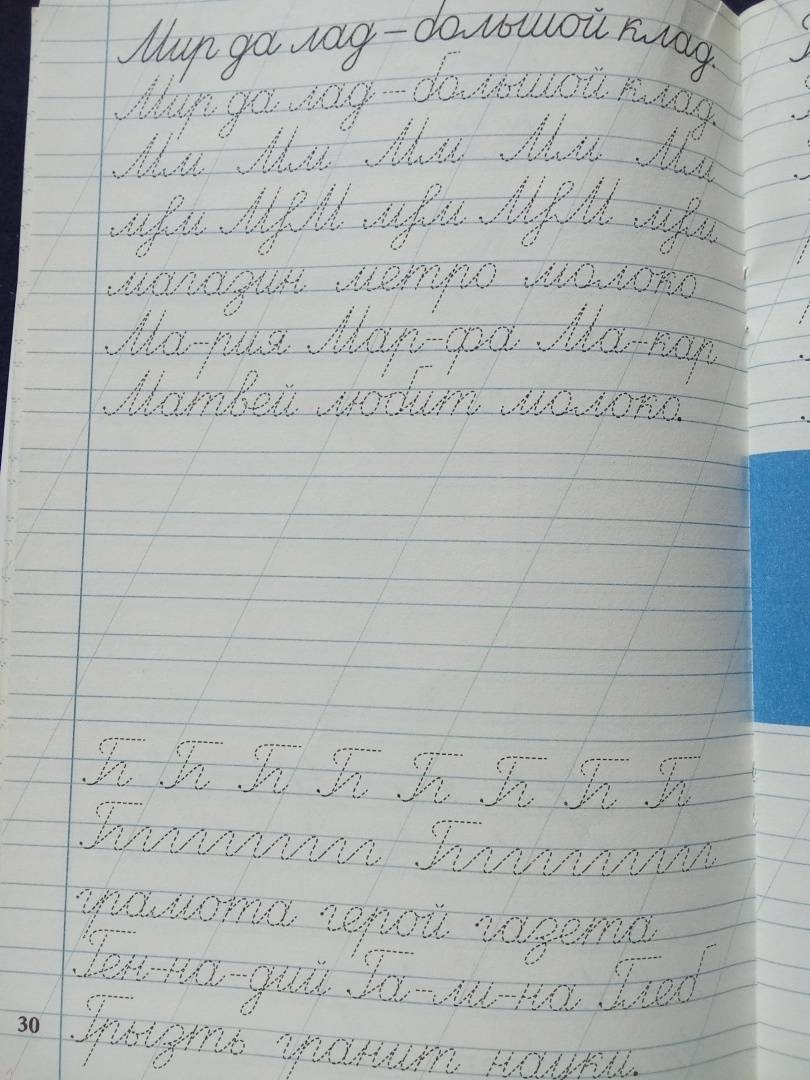 Мир да лад – большой клад.
Мир да лад – большой клад.
Мм Мм Мм Мм Мм
магазин метро молоко
Ма-рия Мар-фа Ма-кар
Матвей любит молоко.
Гг Гг Гг Гг Гг Гг Гг Гг
Ггггггггг Ггггггггг
грамота герой газета
Ген-на-дий Га-ли-на Глеб
Грызть гранит науки.
30